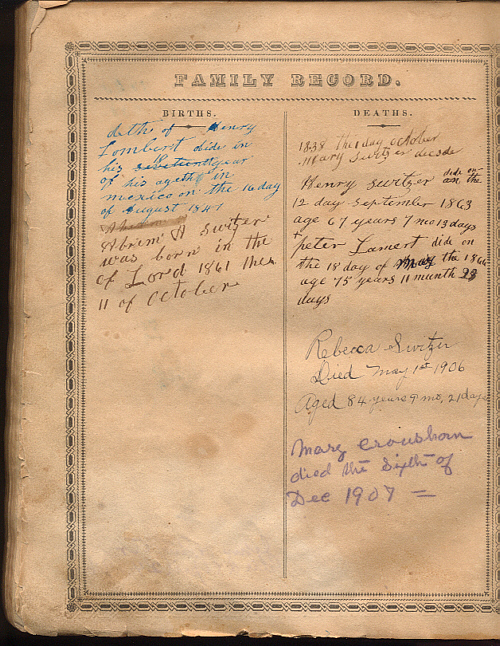 FAMILY RECORD.
BIRTHS.
deth of Henry
Lombert dide in
his year
of his age in
mexico in the 16 day
of August 1847
Abrim A Switzer
was born in the
of Lord 1861 the
11 of October
DEATHS.
1838 the 1 day October
Mary Switzer decsde
Henry Switzer dide on the
12 day September 1863
age 67 years 7 mo 13 days
peter Lamert dide on
the 18 day of May the 1866
age 75 years 11 munth 23
days
Rebecca Switzer
Died May 1st 1906
Aged 84 years 9 mo, 21 days
Mary Croushorn
died the Sixth of
Dec 1907 =